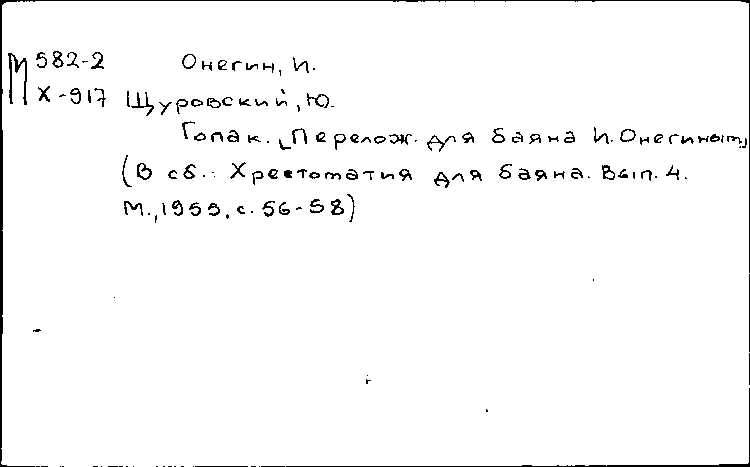 М 582-2 Онегин, И.
Х-917 Щуровский, Ю.
Гопак. [Перелож. для баяна И. Онегиным]
(В сб.: Хрестоматия для баяна. Вып. 4.
М., 1955, с. 56-58)